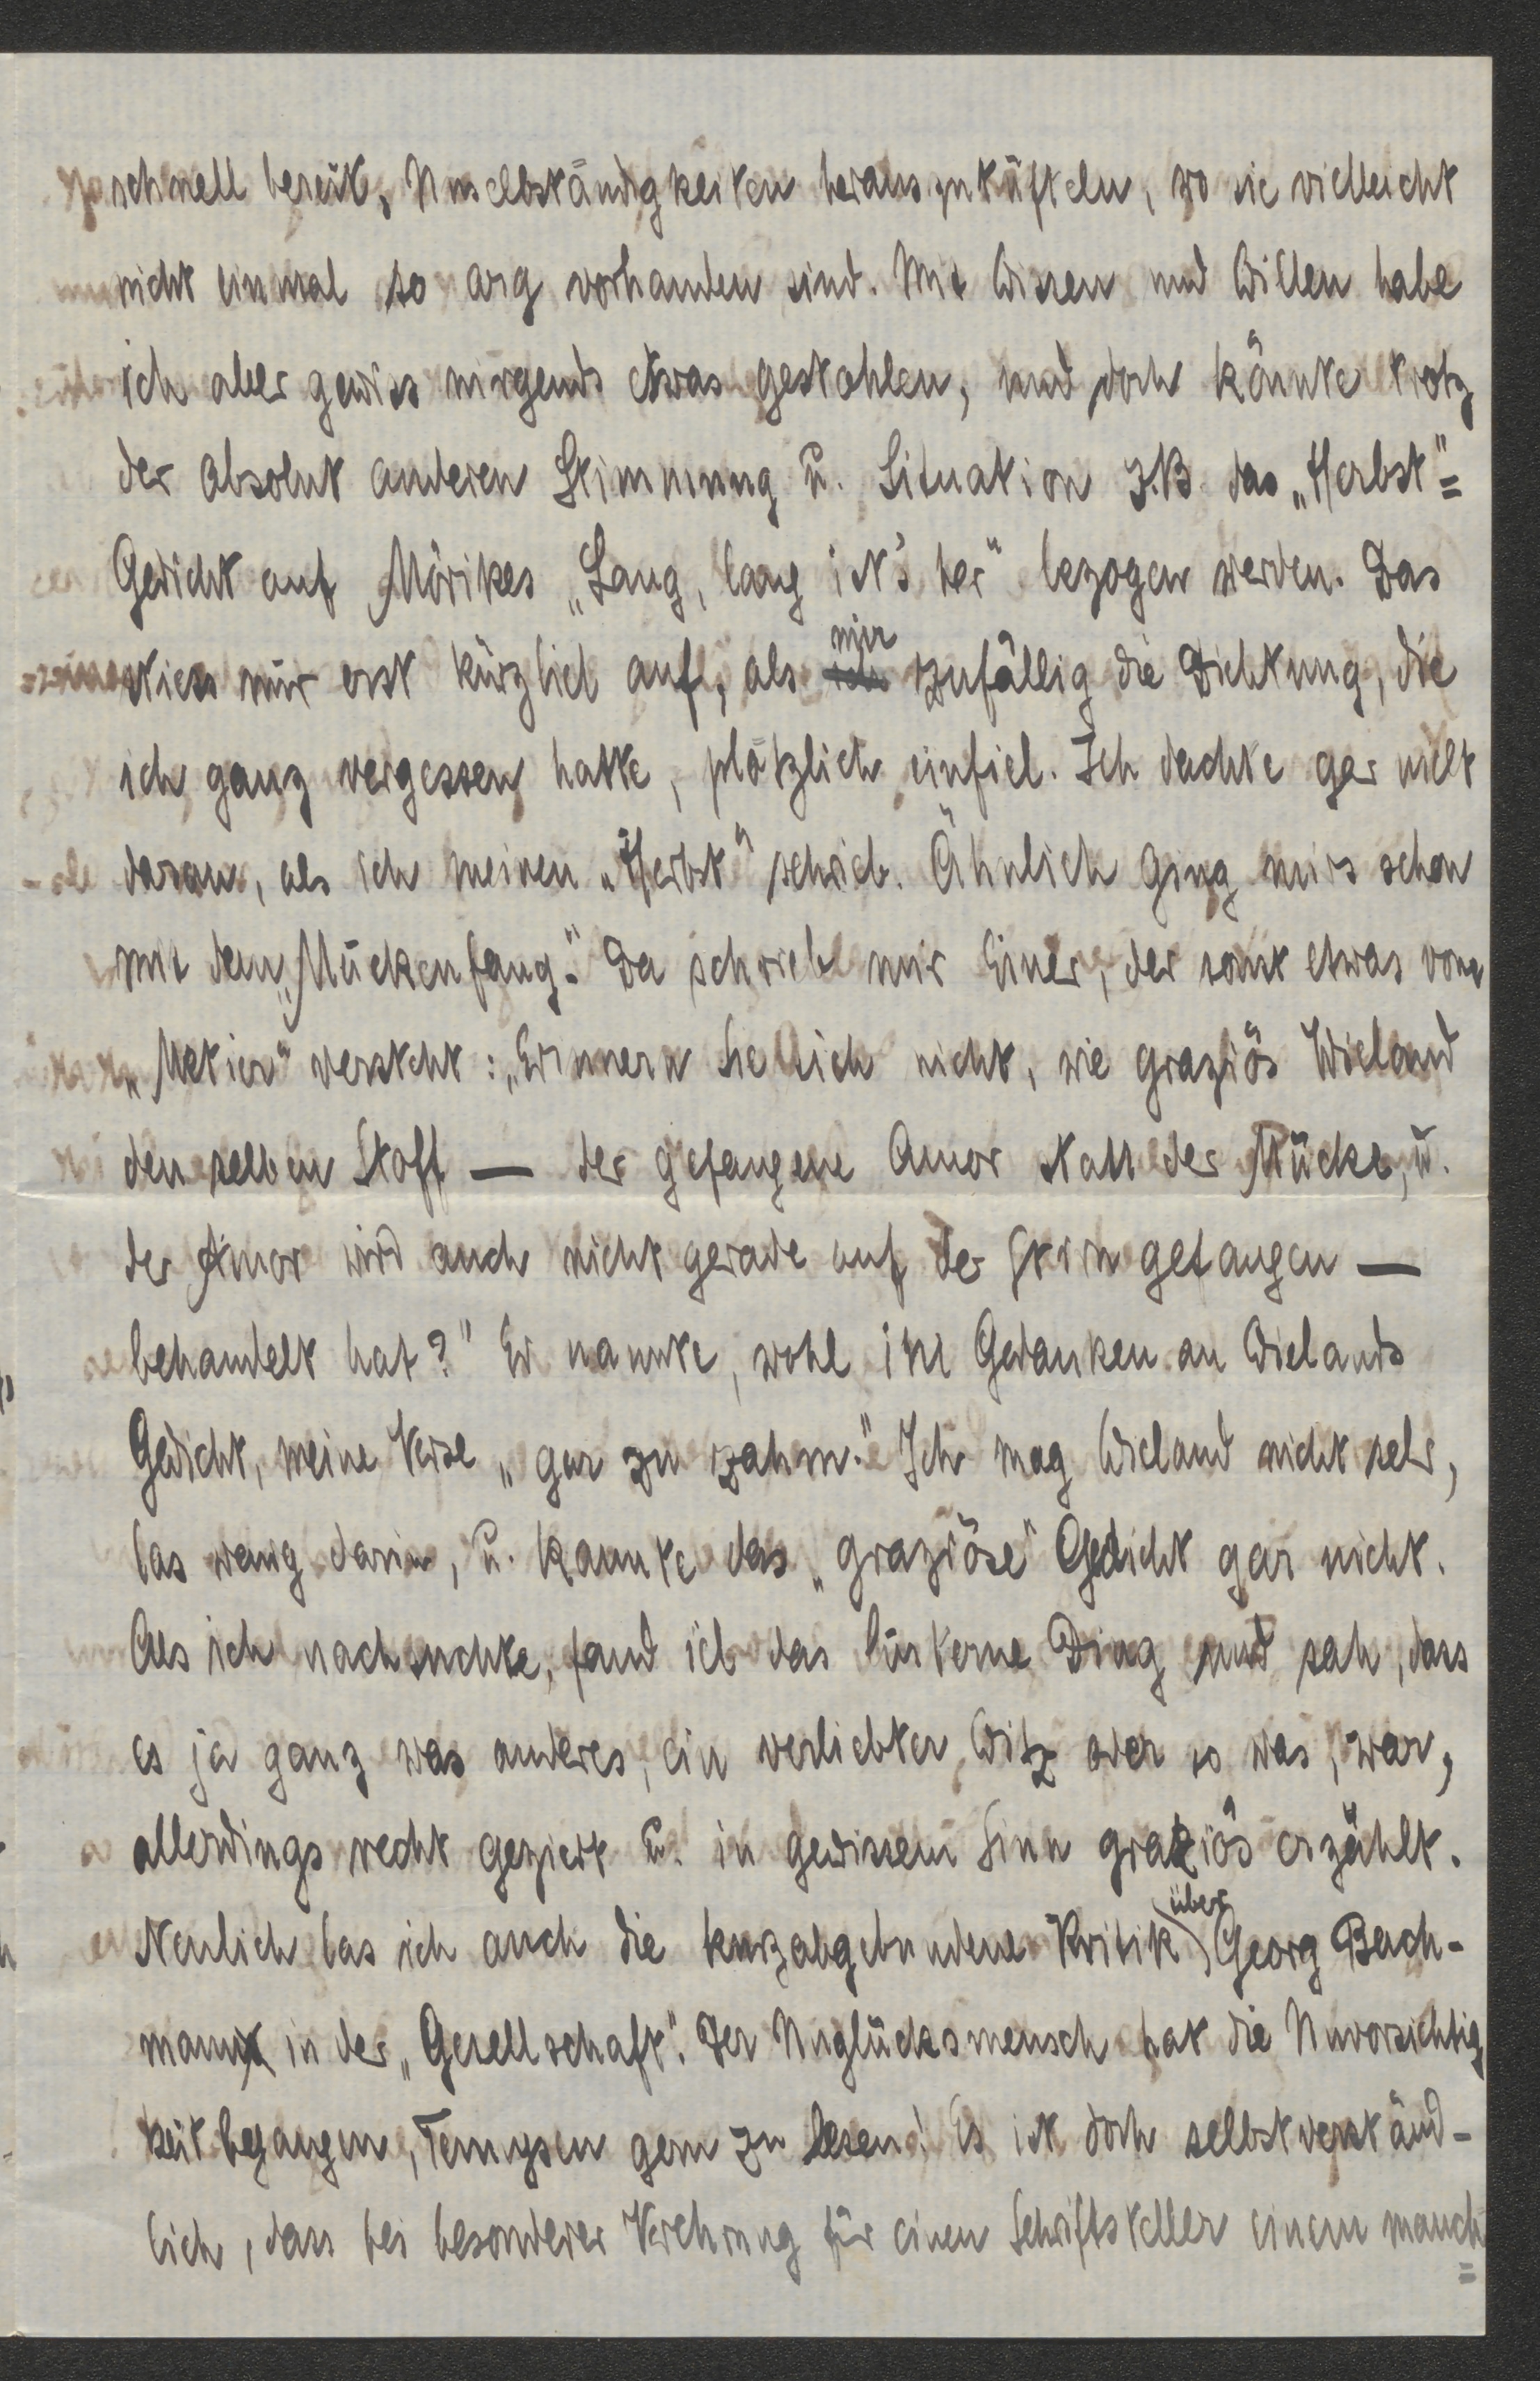 schnell bereit, Unselbständigkeiten herauszutüfteln, wo sie vielleicht
nicht einmal so arg vorhanden sind. Mit Wissen und Willen habe
ich aber gewiss nirgends etwas gestohlen, und doch könnte trotz
der absolut anderen Stimmung u. Situation z.B. das „Herbst"=
Gedicht auf Mörikes „Lang, lang ist's her" bezogen werden. Das
stiess mir erst kürzlich auf, als mir zufällig die Dichtung, die
ich ganz vergessen hatte, plötzlich einfiel. Ich dachte gar nicht
daran, als ich meinen „Herbst" schrieb. Ähnlich ging mirs schon
mit dem „Mückenfang." Da schrieb mir Einer, der sonst etwas vom
„Metier" versteht: „Erinnern Sie sich nicht, wie graziös Wieland
denselben Stoff — der gefangene Amor statt der Mücke, u.
der Amor wird auch nicht gerade auf der Stirn gefangen —
behandelt hat?" Er nannte, wohl im Gedanken an Wielands
Gedicht, meine Verse „gar zu zahm." Ich mag Wieland nicht sehr,
las wenig darin, u. kannte das „graziöse" Gedicht gar nicht.
Als ich nachsuchte, fand ich das lüsterne Ding und sah, dass
es ja ganz was anderes, ein verliebter Witz oder so was, war,
allerdings recht geziert u. in gewissem Sinn graziös erzählt.
Neulich las ich auch die kurzabgebundene Kritik über Georg Bach-
mann in der „Gesellschaft". Der Unglücksmensch hat die Unvorsichtig
keit begangen, Tennyson gern zu lesen! Es ist doch selbstverständ-
lich, dass bei besonderer Verehrung für einen Schriftsteller einem manch=